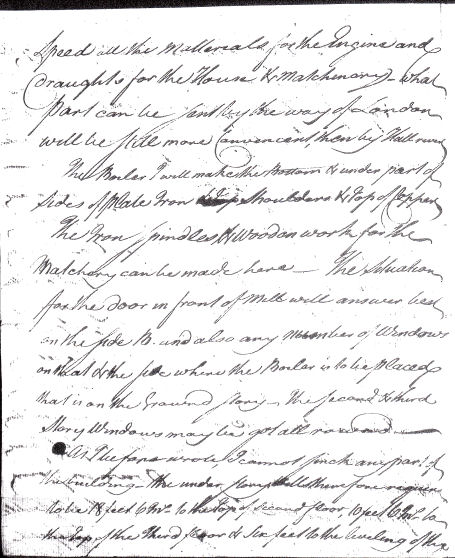 Speed all the Materials for the Engine and
draughts for the House & Matchenary - what
part can be sent by the way of London
will be still more Convenent then by Hull
The Boiler I will make the Bottom & under part of
sides of Plate Iron Shoulders & top of Copper
The Iron Spindles & Wooden work for the
Matchery can be made here - The Situation
for the door in front of Mill will answer best
on the side B. and also any Number of Windows
on that & the side where the Boiler is to be placed
that is on the Ground Story - The second & third
Story Windows may be got all round
As I before wrote, I cannot sink any part of
the building - the under story will therefore require
to be 18 feet 6 Ins. to the top of second floor 10 feet 6 Ins. to
the top of the Third floor & Six feet to the leveling of the